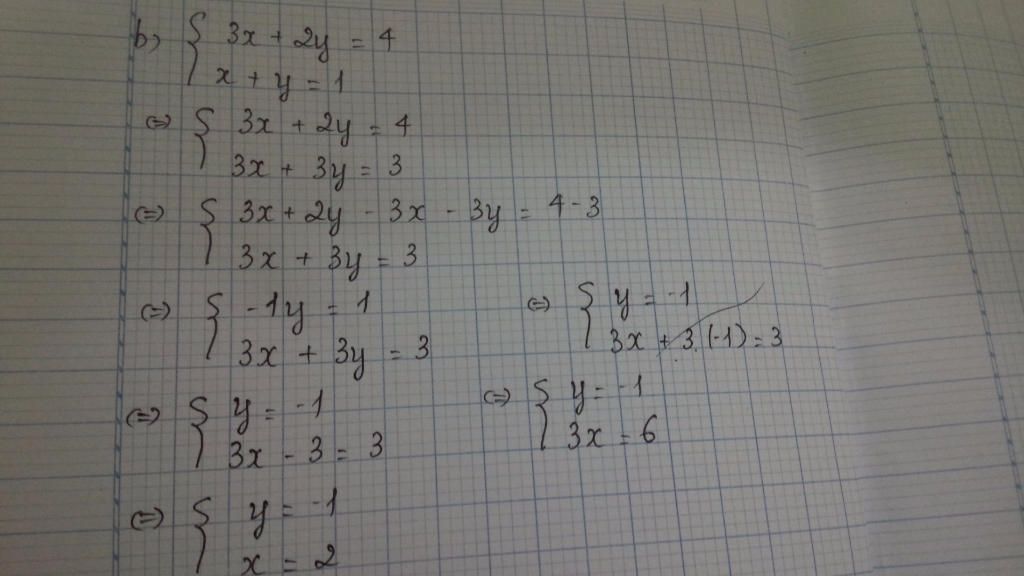 b) { 3x + 2y = 4
x + y = 1
(=) { 3x + 2y = 4
3x + 3y = 3
(=) { 3x + 2y - 3x - 3y = 4 - 3
3x + 3y = 3
(=) { -1y = 1
3x + 3y = 3
(=) { y = -1
3x + 3.(-1) = 3
(=) { y = -1
3x - 3 = 3
(=) { y = -1
3x = 6
(=) { y = -1
x = 2